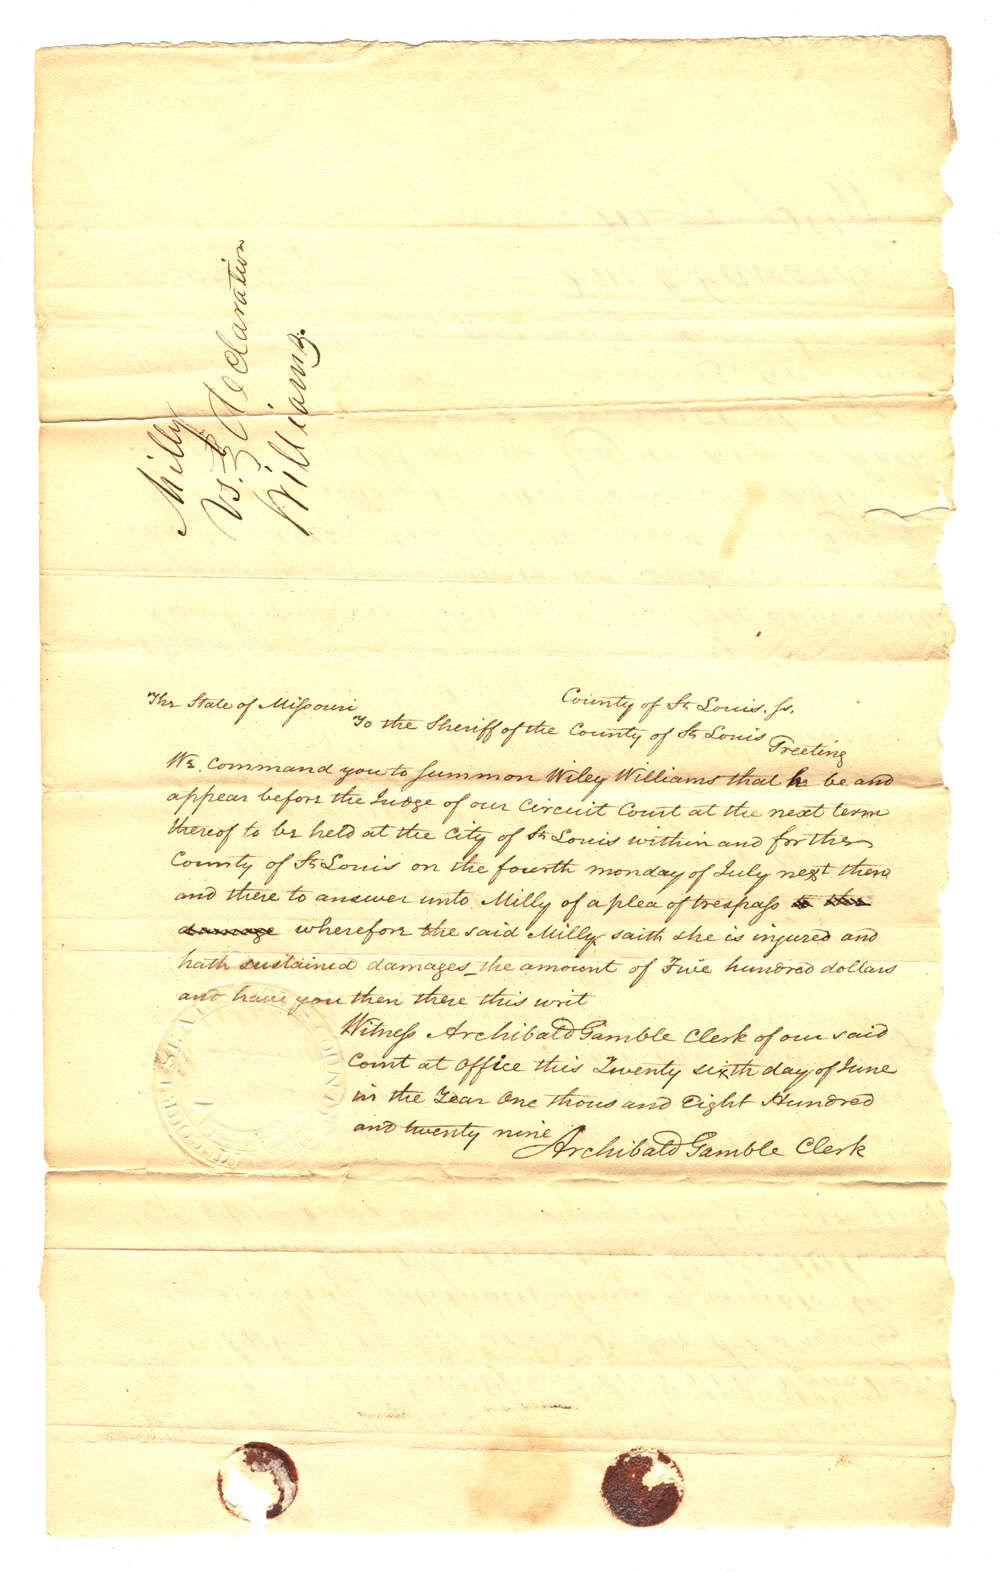 Milly
vs. } Declaration
Williams.
The State of Missouri County of St Louis. ss.
To the Sheriff of the County of St Louis Greeting
We command you to summon Wiley Williams that he be and
appear before the Judge of our Circuit Court at the next term
thereof to be held at the City of St Louis within and for the
County of St Louis on the fourth monday of July next then
and there to answer unto Milly of a plea of trespass to the
damage wherefore the said Milly saith she is injured and
hath sustained damages the amount of Five hundred dollars
and have you then there this writ
Witness Archibald Gamble Clerk of our said
Court at office this Twenty sixth day of June
in the Year One thousand Eight Hundred
and twenty nine
Archibald Gamble Clerk